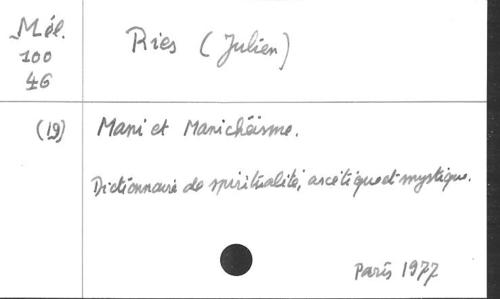 Mél.
100
46
Ries (Julien)
(19)
Mani et Manichéisme.
Dictionnaire de spiritualité, ascétique et mystique.
Paris 1977